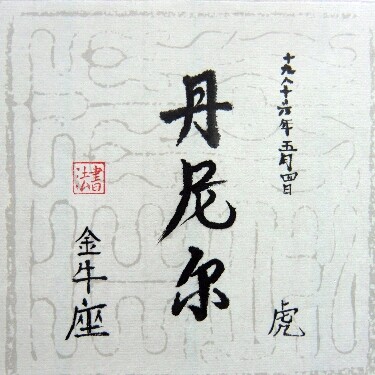 十九八十六年五月四日
虎
丹尼尔
書法
金牛座